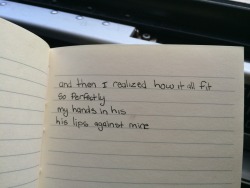 and then I realized how it all fit
so perfectly
my hands in his
his lips against mine